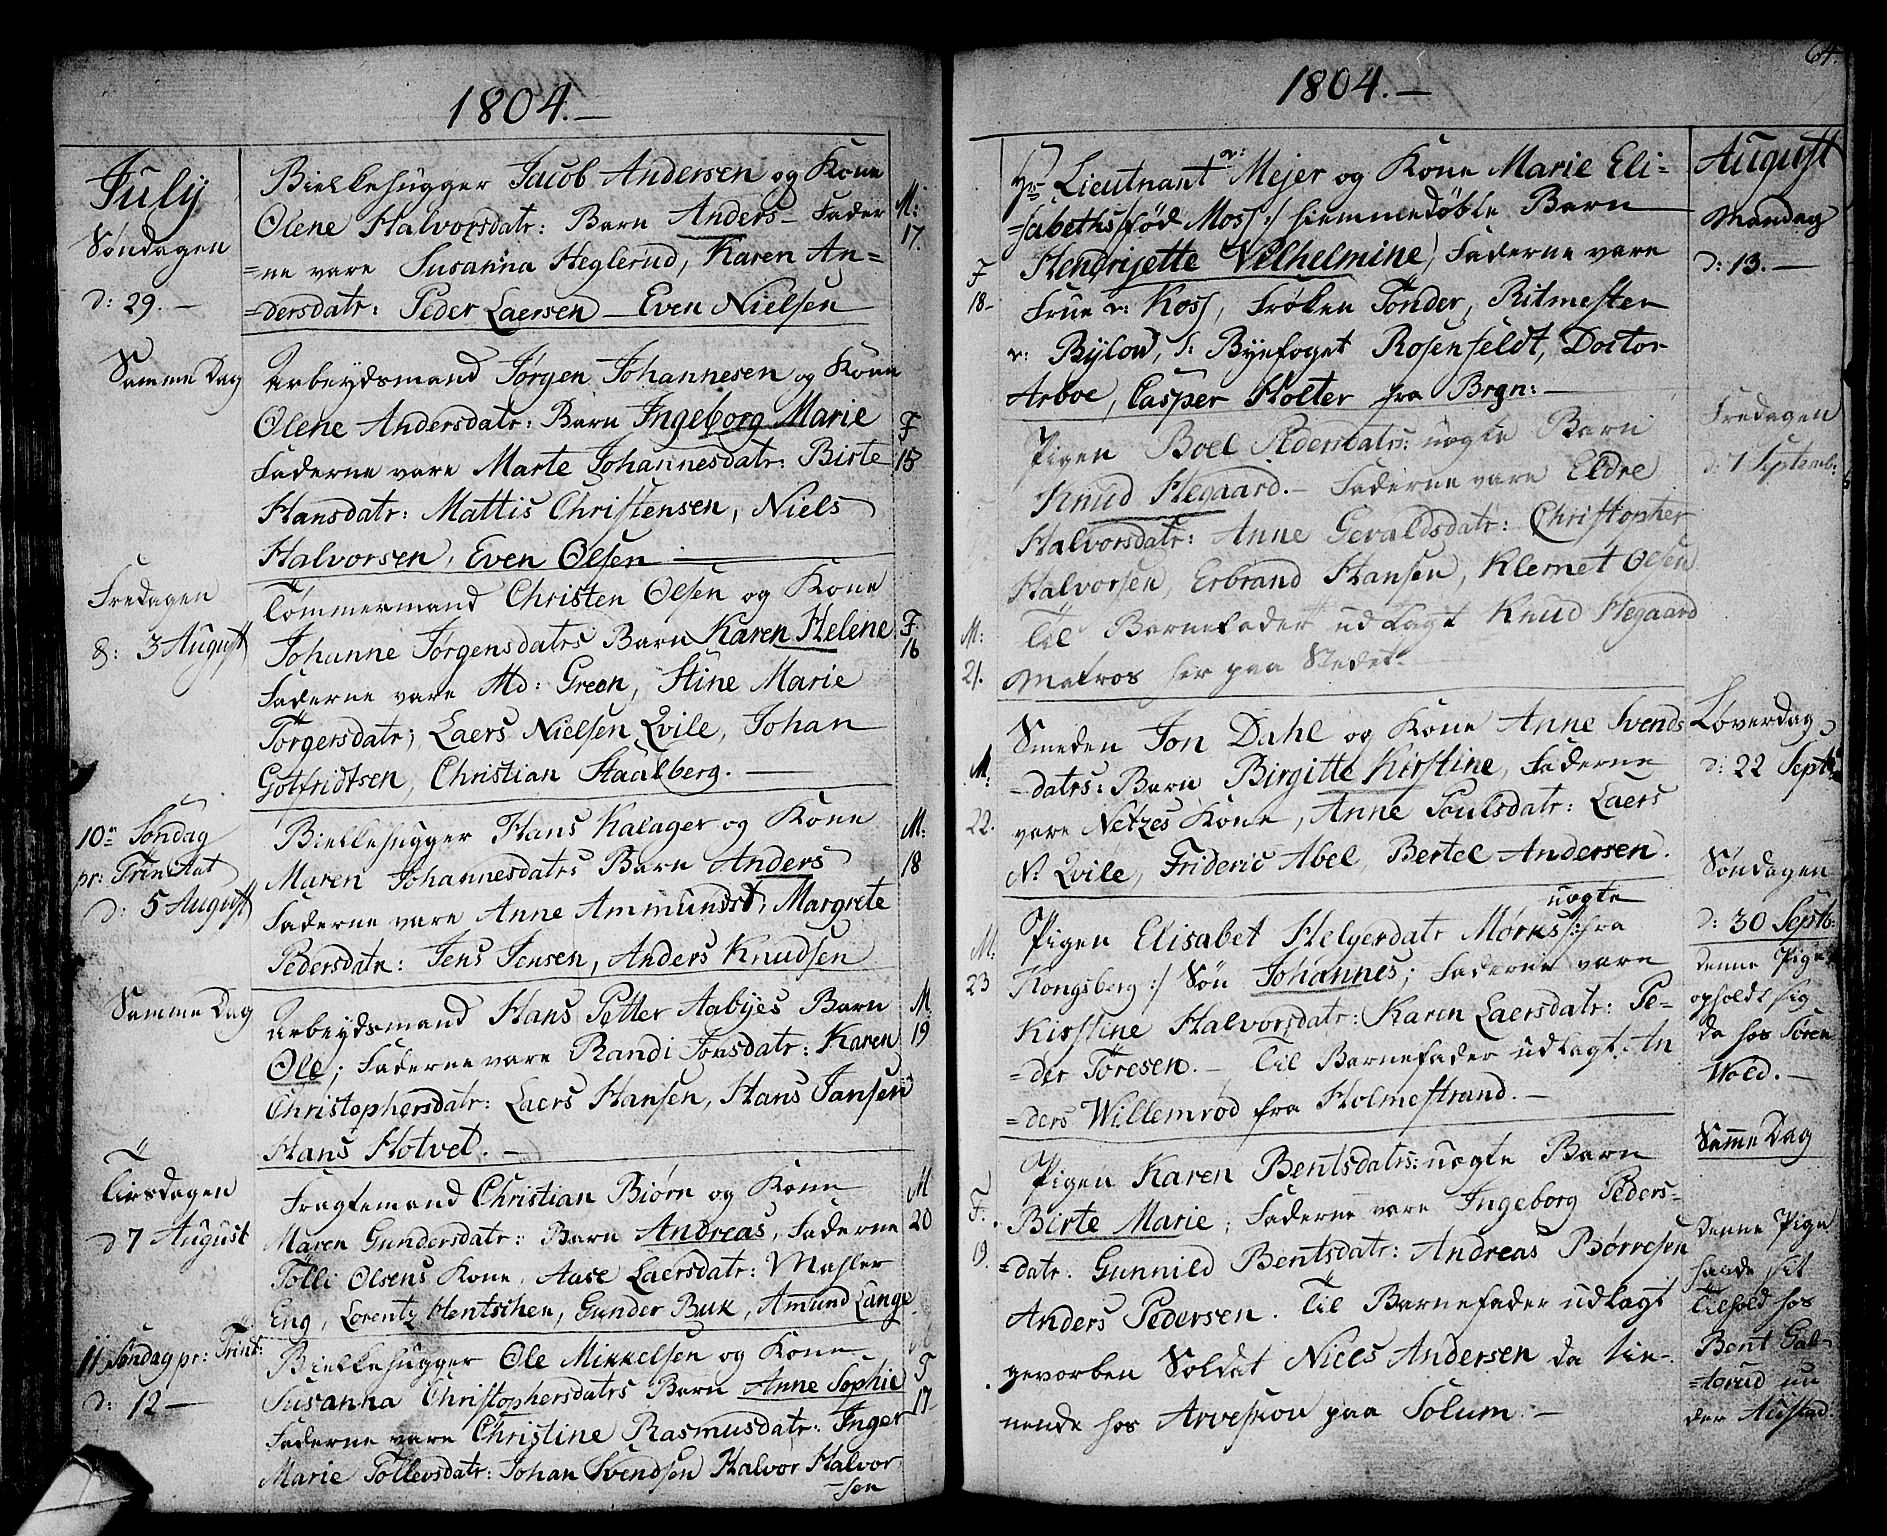 1804.—
July
Søndagen
d: 29.—
Bielkehugger Jacob Andersen og Kone
Olene Halvorsdatr: Barn Anders — Fader
=ne vare Susanna Heglerud, Karen An=
=dersdatr: Peder Laersen — Even Nielsen
M:
17.
Samme Dag
Arbeydsmand Jørgen Johannesen og Kone
Olene Andersdatr: Barn Ingeborg Marie
Faderne vare Marte Johannesdatr: Birte
Hansdatr: Mattis Christensen, Niels
Halvorsen, Even Olsen —
F
15
Fredagen
d: 3 August
Tømmermand Christen Olsen og Kone
Johanne Jørgensdatrs Barn Karen Helene
Faderne vare Md: Green, Stine Marie
Törgersdatr; Laers Nielsen Qvile, Johan
Gotfridtsen, Christian Staalberg.—
F
16
10n Søndag
pr: Trinitat
d: 5 August
Bielkehugger Hans Kalager og Kone
Maren Johannesdatrs Barn Anders
Faderne vare Anne Ammundst, Margrete
Pedersdatr: Jens Jensen, Anders Knudsen
M:
18
Samme Dag
Arbeydsmand Hans Petter Aabyes Barn
Ole; Faderne vare Randi Jonsdatr: Karen
Christophersdatr: Laers Hansen, Hans Jansen
Hans Hotvet.—
M
19
Tirsdagen
d 7 August
Fragtemand Christian Biørn og Kone
Maren Gundersdatr: Barn Andreas, Faderne
Tolli Olsens Kone, Aase Laersdatr: Mahler
Eng, Lorentz Hentschen, Gunder Buk, Amund Lange
M
20
11 Søndag pr: Trint:
d: 12 —
Bielkehugger Ole Mikkelsen og Kone
Susanna Christophersdatrs Barn Anne Sophie
Faderne vare Christine Rasmusdatr: Inger
Marie Tollevsdatr: Johan Svendsen Halvor Halvor
=sen
F
17
64.
1804.—
Hr Lieutnant v: Mejer og Kone Marie Eli=
=sabeths /: fød Moss :/ hiemmedøbte Barn
Hendrijette Vilhelmine) Faderne vare
Frue v: Koss, Frøken Tønder, Ritmester
v: Bylow, S: Byefoget Rosenfeldt, Doctor
Arboe, Casper Holter fra Brgn:—
F
18-
August
Mandag
d: 13.—
Pigen Boel Pedersdatrs: uægte Barn
Knud Hegaard.— Faderne vare Eldre
Halvorsdatr: Anne Gevaldsdatr: Christopher
Halvorsen, Erbrand Hansen, Klemet Olsen
Til Barnefader udlagt Knud Hegaard
Matros her paa Stedet.
M:
21.
Fredagen
d: 7 Septemb:
Smeden Jon Dahl og Kone Anne Svends
=datrs: Barn Birgitte Kirstine, Faderne
vare Netzes Kone, Anne Poulsdatr: Laers
N: Qvile, Frideric Abel, Bertel Andersen.
M:
22.
Løverdag
d: 22 Septb
uægte
Pigen Elisabet Helgerdatr Mørks /: fra
Kongsberg :/ Søn Johannes; Faderne vare
Kirstine Halvorsdatr: Karen Laersdatr: Pe=
=der Töresen.— Til Barnefader udlagt: An
=ders Willemrød fra Holmestrand.—
M:
23
Søndagen
d: 30 Septb:
Denne Pige
opholdt sig
da hos Søren
Wold.—
Pigen Karen Bentsdatrs: uægte Barn
Birte Marie; Faderne vare Ingeborg Peders=
=datr. Gunnild Bentsdatr: Andreas Børresen
Anders Pedersen. Til Barnefader udlagt
gevorben Soldat Niels Andersen da tie=
nende hos Arveskou paa Solum:—
F.
19.
Samme Dag
Denne Pige
havde sit
Tilhold hos
Bent Gal=
=terud un
der Austad.